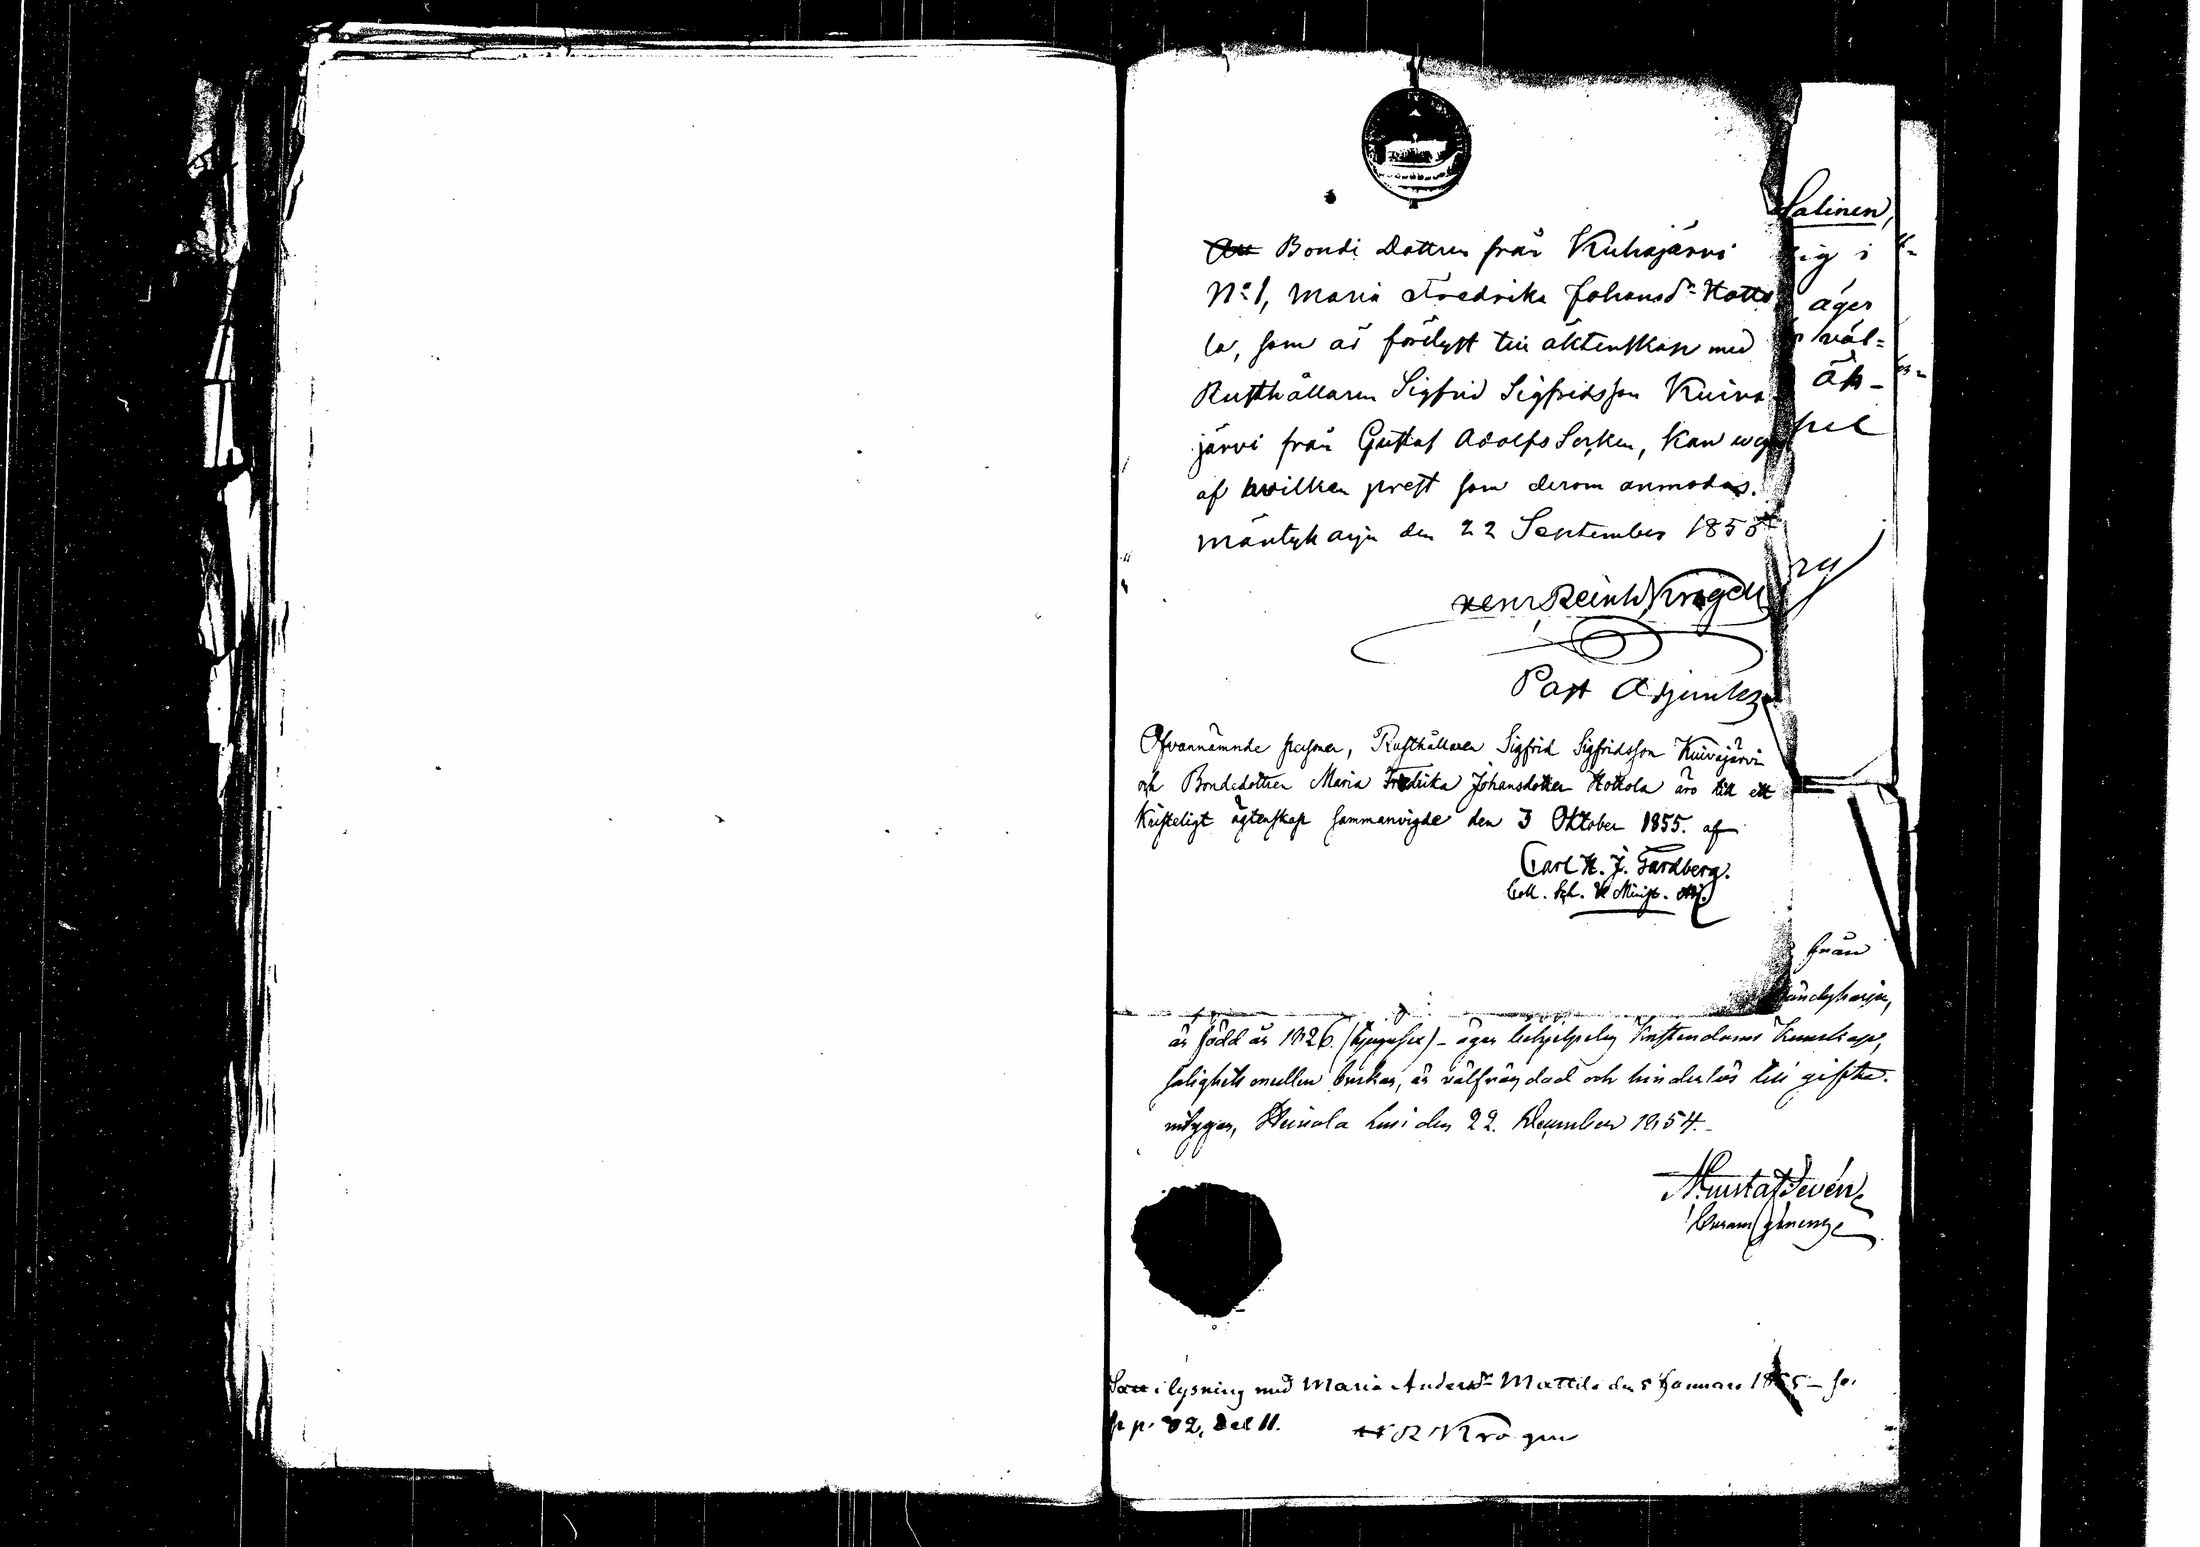 Att Bondi Dottren från Kuhajärvi
No 1, Maria Fredrika Johansdr Hotto
la, som är förelyst till äktenskap med
Rusthållaren Sigfrid Sigfridsson Kuiva
järvi från Gustaf Adolfs Socken, kan wig
af hvilken prest som derom anmodas.
Mäntyharju den 22 September 1855
Henr Reinh Krogell
Past Adjunkt
Ofvannämnde personer, Rusthållaren Sigfrid Sigfridsson Kuivajärvi
och Bondedottren Maria Fredrika Johansdotter Hottola äro till ett
Kristeligt ägtenskap sammanvigde den 3 Oktober 1855. af
Carl H. J. Fardberg.
Coll. Sch. V. Minist. Adj.
Salinen,
ig i
äger
väl=
äk-
från
ändyharju,
är född år 1826. (tjugusex) - äger behjelpelig Kristendoms Kunskap,
salighets medlen brukar, är välfrägdad och hinderlös till gifter-
Heinola den 22. December 1854.
Gustaf Levén
i lysning med Maria Andersdr Mattila den 5 Januari 1855 - se.
p. 82, Del II.
H R Krogell